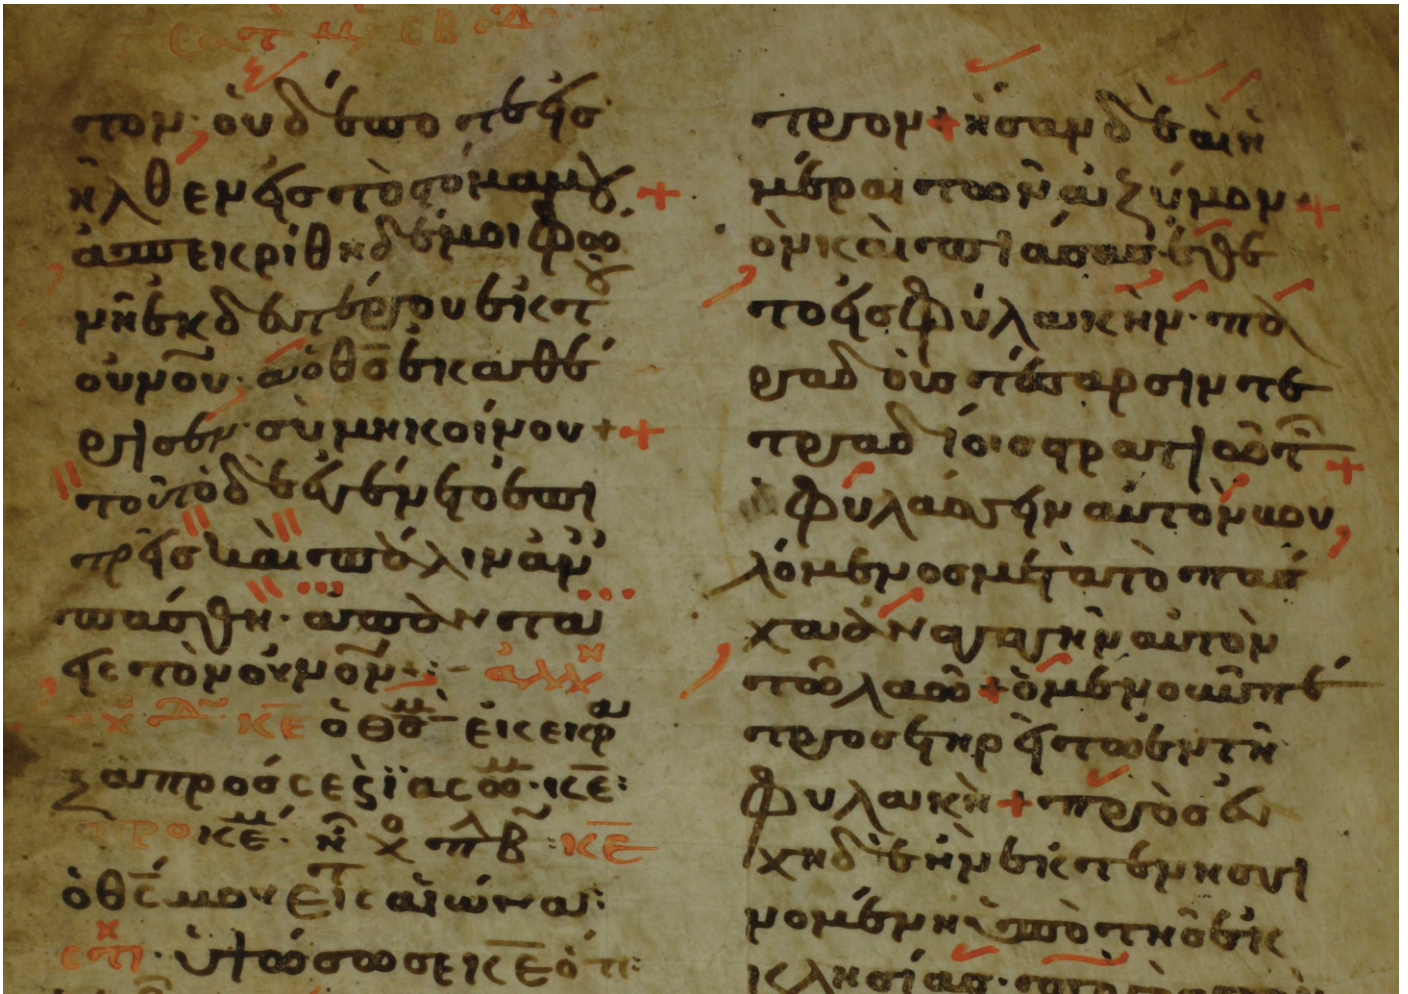 τον· οὐδέποτε εἰσ
ῆλθεν εἰς τὸ στόμα μου +
ἀπεκρίθη δέ μοι φω
νὴ ἐκ δευτέρου ἐκ τοῦ
οὐνοῦ· ἃ ὁ θς ἐκαθέ
ρισεν· σὺ μὴ κοίνου +
τοῦτο δὲ ἐγένετο ἐπὶ
τρεῖς καὶ πάλιν ἀνε
σπάσθη· ἅπαντα
εἰς τὸν οὐνόν +:-
κε ὁ θς μ ἐκέκρα
ξα πρός σε κ ϊάσω μ· κε:
προκε. ἦχο πλ β: κε
ὁ θς μου εἰς αἰῶνα:
στι· ὑψώσω σε κε ὅτι:
τρον + ἦσαν δὲ αἱ ἡ
μέραι τῶν ἀζύμων +
ὃν καὶ πιάσας ἔθε
το εἰς φυλακήν· πα
ραδοὺς τέσσαρσιν τε
τραδίοις στρατιωτῶν +
φυλάσσειν αὐτὸν βου
λόμενος μετὰ τὸ πάσ
χα ἀναγαγεῖν αὐτὸν
τῶ λαῶ + ὁ μὲν οὖν πέ
τρος ἐτηρεῖτο ἐν τῆ
φυλακῆ + προσευ
χὴ δὲ ἦν ἐκτενὴς γι
νομένη ὑπὸ τῆς ἐκ
κλησίας